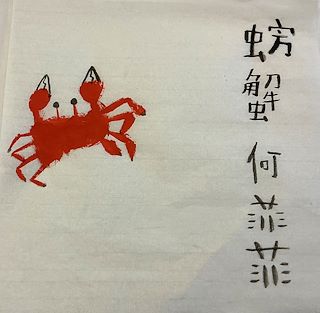 螃蟹 何菲菲